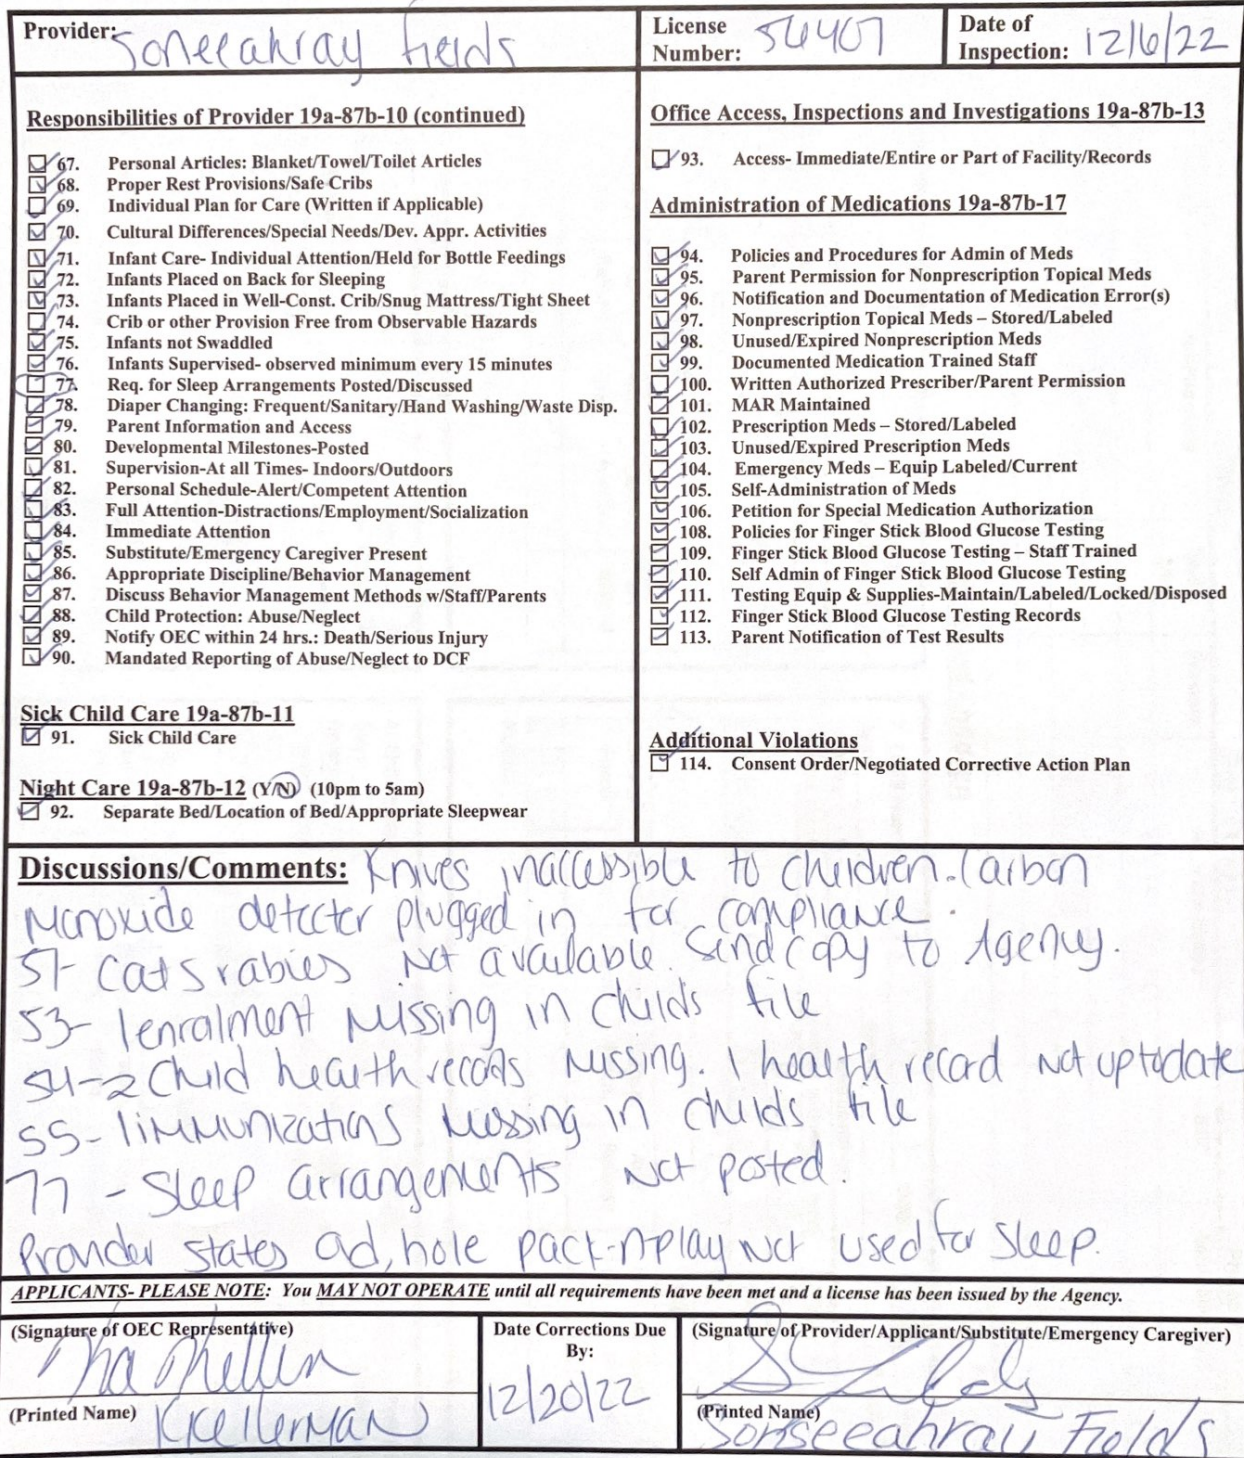 Provider: Soneeahray Fields
License Number: 56407
Date of Inspection: 12/6/22
Responsibilities of Provider 19a-87b-10 (continued)
67. Personal Articles: Blanket/Towel/Toilet Articles
68. Proper Rest Provisions/Safe Cribs
69. Individual Plan for Care (Written if Applicable)
70. Cultural Differences/Special Needs/Dev. Appr. Activities
71. Infant Care- Individual Attention/Held for Bottle Feedings
72. Infants Placed on Back for Sleeping
73. Infants Placed in Well-Const. Crib/Snug Mattress/Tight Sheet
74. Crib or other Provision Free from Observable Hazards
75. Infants not Swaddled
76. Infants Supervised- observed minimum every 15 minutes
77. Req. for Sleep Arrangements Posted/Discussed
78. Diaper Changing: Frequent/Sanitary/Hand Washing/Waste Disp.
79. Parent Information and Access
80. Developmental Milestones-Posted
81. Supervision-At all Times- Indoors/Outdoors
82. Personal Schedule-Alert/Competent Attention
83. Full Attention-Distractions/Employment/Socialization
84. Immediate Attention
85. Substitute/Emergency Caregiver Present
86. Appropriate Discipline/Behavior Management
87. Discuss Behavior Management Methods w/Staff/Parents
88. Child Protection: Abuse/Neglect
89. Notify OEC within 24 hrs.: Death/Serious Injury
90. Mandated Reporting of Abuse/Neglect to DCF
Sick Child Care 19a-87b-11
91. Sick Child Care
Night Care 19a-87b-12 (Y/N) (10pm to 5am)
92. Separate Bed/Location of Bed/Appropriate Sleepwear
Office Access, Inspections and Investigations 19a-87b-13
93. Access- Immediate/Entire or Part of Facility/Records
Administration of Medications 19a-87b-17
94. Policies and Procedures for Admin of Meds
95. Parent Permission for Nonprescription Topical Meds
96. Notification and Documentation of Medication Error(s)
97. Nonprescription Topical Meds – Stored/Labeled
98. Unused/Expired Nonprescription Meds
99. Documented Medication Trained Staff
100. Written Authorized Prescriber/Parent Permission
101. MAR Maintained
102. Prescription Meds – Stored/Labeled
103. Unused/Expired Prescription Meds
104. Emergency Meds – Equip Labeled/Current
105. Self-Administration of Meds
106. Petition for Special Medication Authorization
108. Policies for Finger Stick Blood Glucose Testing
109. Finger Stick Blood Glucose Testing – Staff Trained
110. Self Admin of Finger Stick Blood Glucose Testing
111. Testing Equip & Supplies-Maintain/Labeled/Locked/Disposed
112. Finger Stick Blood Glucose Testing Records
113. Parent Notification of Test Results
Additional Violations
114. Consent Order/Negotiated Corrective Action Plan
Discussions/Comments: Knives inaccessible to children. Carbon
Monoxide detector plugged in for compliance.
51- Cats rabies not available. Send copy to Agency.
53- 1 enralment missing in childs file
54-2 Child health records missing. 1 health record not up to date
55- 1 immunizations missing in childs file
77 - Sleep arrangements not posted.
Provider states hole pack-n-play not used for sleep.
APPLICANTS- PLEASE NOTE: You MAY NOT OPERATE until all requirements have been met and a license has been issued by the Agency.
(Signature of OEC Representative)
(Printed Name) K Kellerman
Date Corrections Due By:
12/20/22
(Signature of Provider/Applicant/Substitute/Emergency Caregiver)
(Printed Name) Sonseeahray Fields